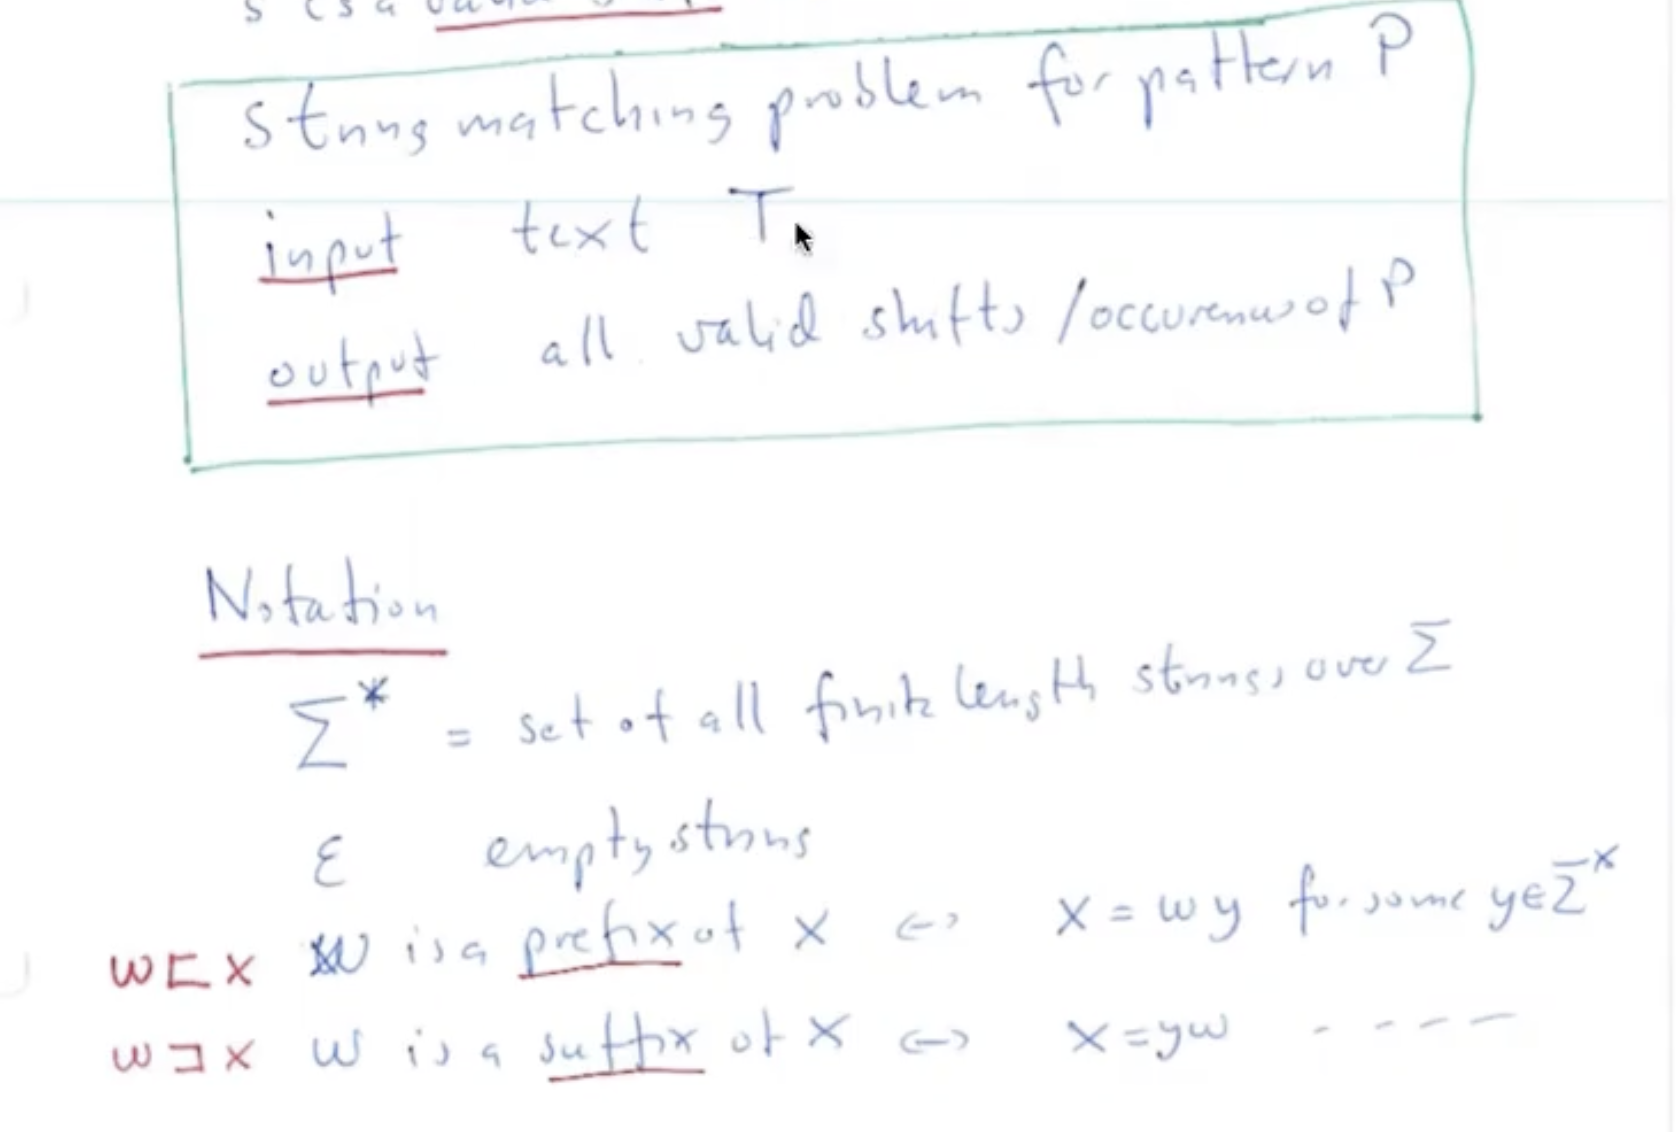 s is a
String matching problem for pattern P
input text T
output all valid shifts / occurences of P
Notation
Σ* = set of all finite length strings over Σ
ε empty string
w ⊏ x w is a prefix of x ↔ x = wy for some y ∈ Σ*
w ⊐ x w is a suffix of x ↔ x = yw - - - -